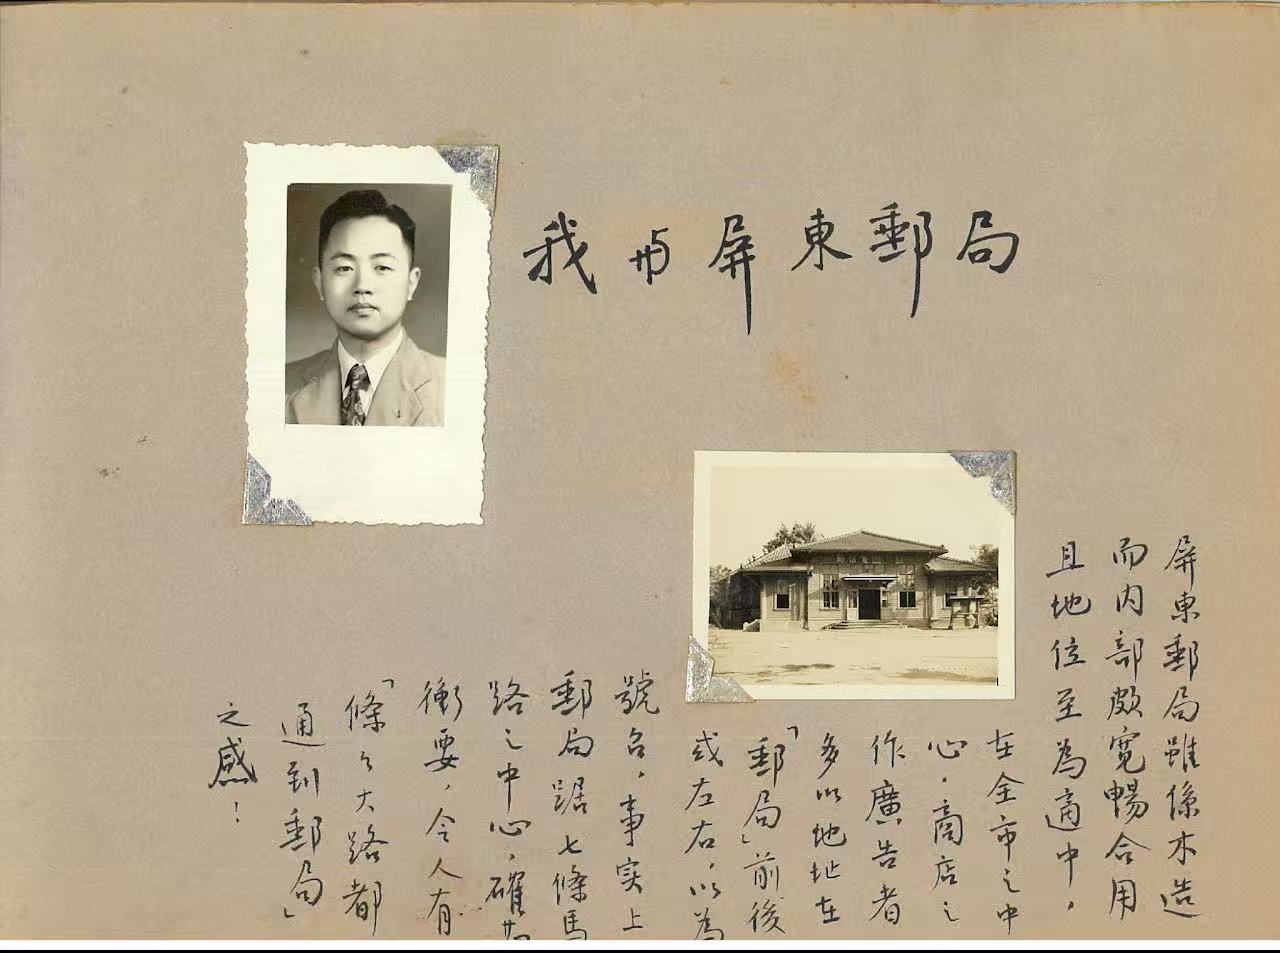 我与屏東郵局
屏東郵局雖係木造
而内部頗寬暢合用
且地位至為適中，
在全市之中
心，商店之
作廣告者
多以地址在
「郵局」前後
或左右，以為
號召，事实上
郵局踞七條馬
路之中心，確
衝要，令人有
「條々大路都
通到郵局」
之感！